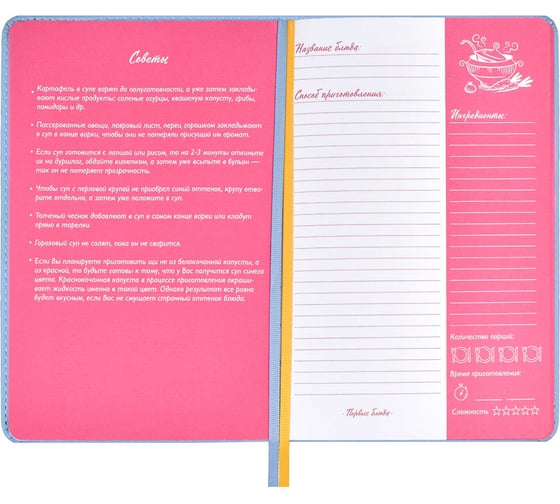 Советы
Картофель в супе варят до полуготовности, а уже затем заклады-
вают кислые продукты: соленые огурцы, квашеную капусту, грибы,
помидоры и др.
Пассерованные овощи, лавровый лист, перец горошком закладывают
в суп в конце варки, чтобы они не потеряли присущий им аромат.
Если суп готовится с лапшой или рисом, то на 2-3 минуты откиньте
их на дуршлаг, обдайте кипятком, а затем уже всыпьте в бульон —
так он не потеряет прозрачность.
Чтобы суп с перловой крупой не приобрел синий оттенок, крупу отва-
рите отдельно, а затем уже положите в суп.
Толченый чеснок добавляют в суп в самом конце варки или кладут
прямо в тарелки.
Гороховый суп не солят, пока он не сварится.
Если Вы планируете приготовить щи не из белокочанной капусты, а
из красной, то будьте готовы к тому, что у Вас получится суп синего
цвета. Краснокочанная капуста в процессе приготовления окраши-
вает жидкость именно в такой цвет. Однако результат все равно
будет вкусным, если Вас не смущает странный оттенок блюда.
Название блюда:
Способ приготовления:
- Первые блюда -
Ингредиенты:
Количество порций:
Время приготовления:
Сложность